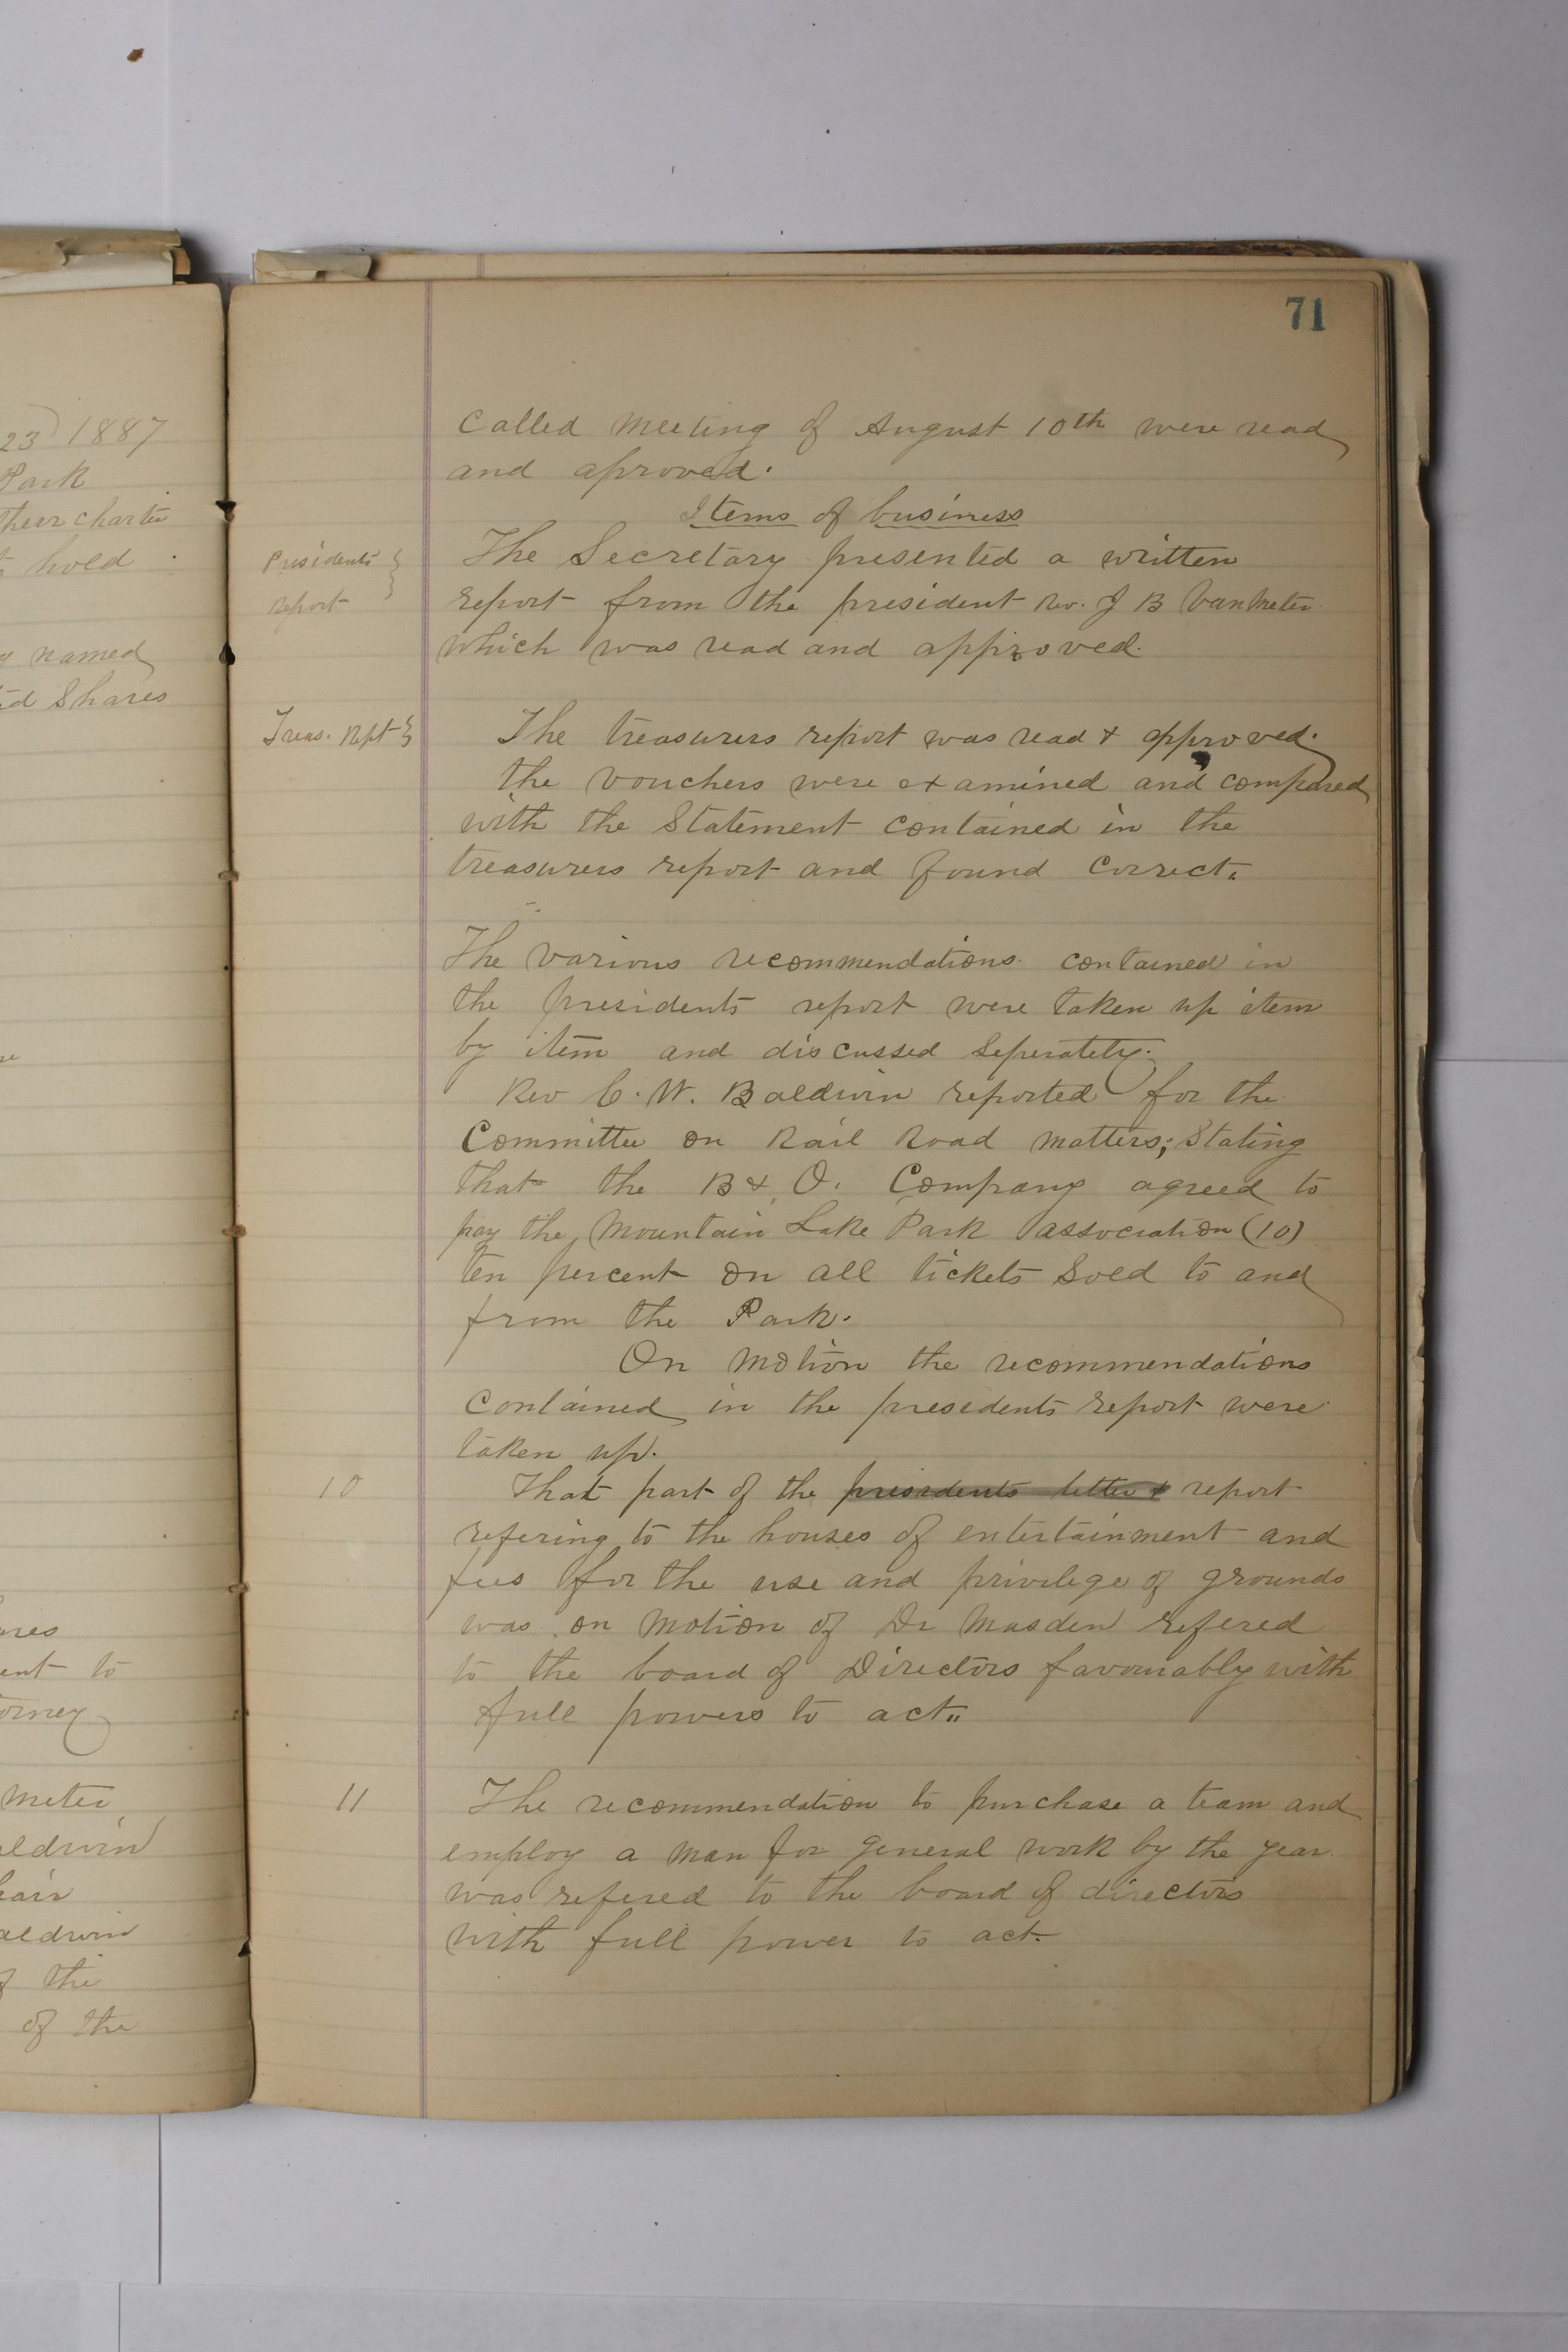 23 1887
Park
their charter
to hold
named
Shares
ent to
orney
meter
aldwin
hair
aldwin
of the
of the
71
Called meeting of August 10th were read
and aproved.
Items of business
Presidents
report
The Secretary presented a written
report from the president Rev. J B VanMeter
which was read and approved.
Treas. Rept
The treasurers report was read & approved.
the vouchers were examined and compared
with the Statement contained in the
treasurers report and found correct.
The various recommendations contained in
the presidents report were taken up item
by item and discussed seperately.
Rev C. W. Baldwin reported for the
Committee on Rail Road matters; Stating
that the B & O. Company agreed to
pay the Mountain Lake Park association (10)
ten percent on all tickets sold to and
from the Park.
On motion the recommendations
contained in the presidents report were
taken up.
10
That part of the presidents letter & report
refering to the houses of entertainment and
fees for the use and privilege of grounds
was on motion of Dr Masden refered
to the board of Directors favourably with
full powers to act.
11
The recommendation to purchase a team and
employ a man for general work by the year
was refered to the board of directors
with full power to act.